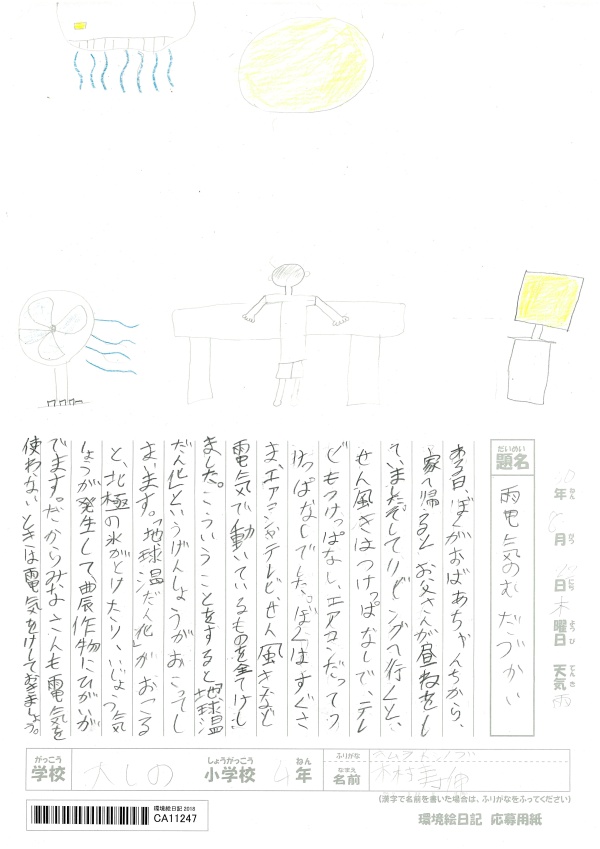 年 ねん 月 がつ 日 にち 木 曜日 ようび 天気 てんき 雨
題名 だいめい
電気のむだづかい
ある日ぼくがおばあちゃんちから、
家へ帰ると、お父さんが昼ねをし
ていました。そしてリビングへ行くと、
せん風きはつけっぱなしで、テレ
ビもつけっぱなし、エアコンだってつ
けっぱなしでした。ぼくはすぐさ
ま、エアコンやテレビ、せん風きなど
電気で動いているものを全てけし
ました。こういうことをすると「地球温
だん化」というげんしょうがおこってし
まいます。「地球温だん化」がおこる
と、北極の氷がとけたり、いじょう気
しょうが発生して、農作物にひがいが
でます。だからみなさんも電気を
使わないときは電気をけしておきましょう。
学校 がっこう 大しの 小学校 しょうがっこう 4年 ねん
ふりがな キムラ
名前 なまえ 木村
(漢字で名前を書いた場合は、ふりがなをふってください)
環境絵日記 応募用紙
環境絵日記 2018
CA11247